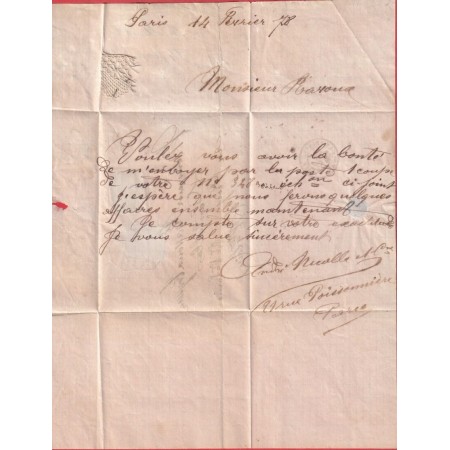 Paris 14 Février 78
Monsieur Razoux
Voulez vous avoir la bonté
de m'envoyer par la poste 1 coupe
de votre ci joint
j'espère que nous ferons quelques
affaires ensemble maintenant
Je compte sur votre exactitude
Je vous salue sincèrement
André Nicolle
rue Poissonnière
Paris